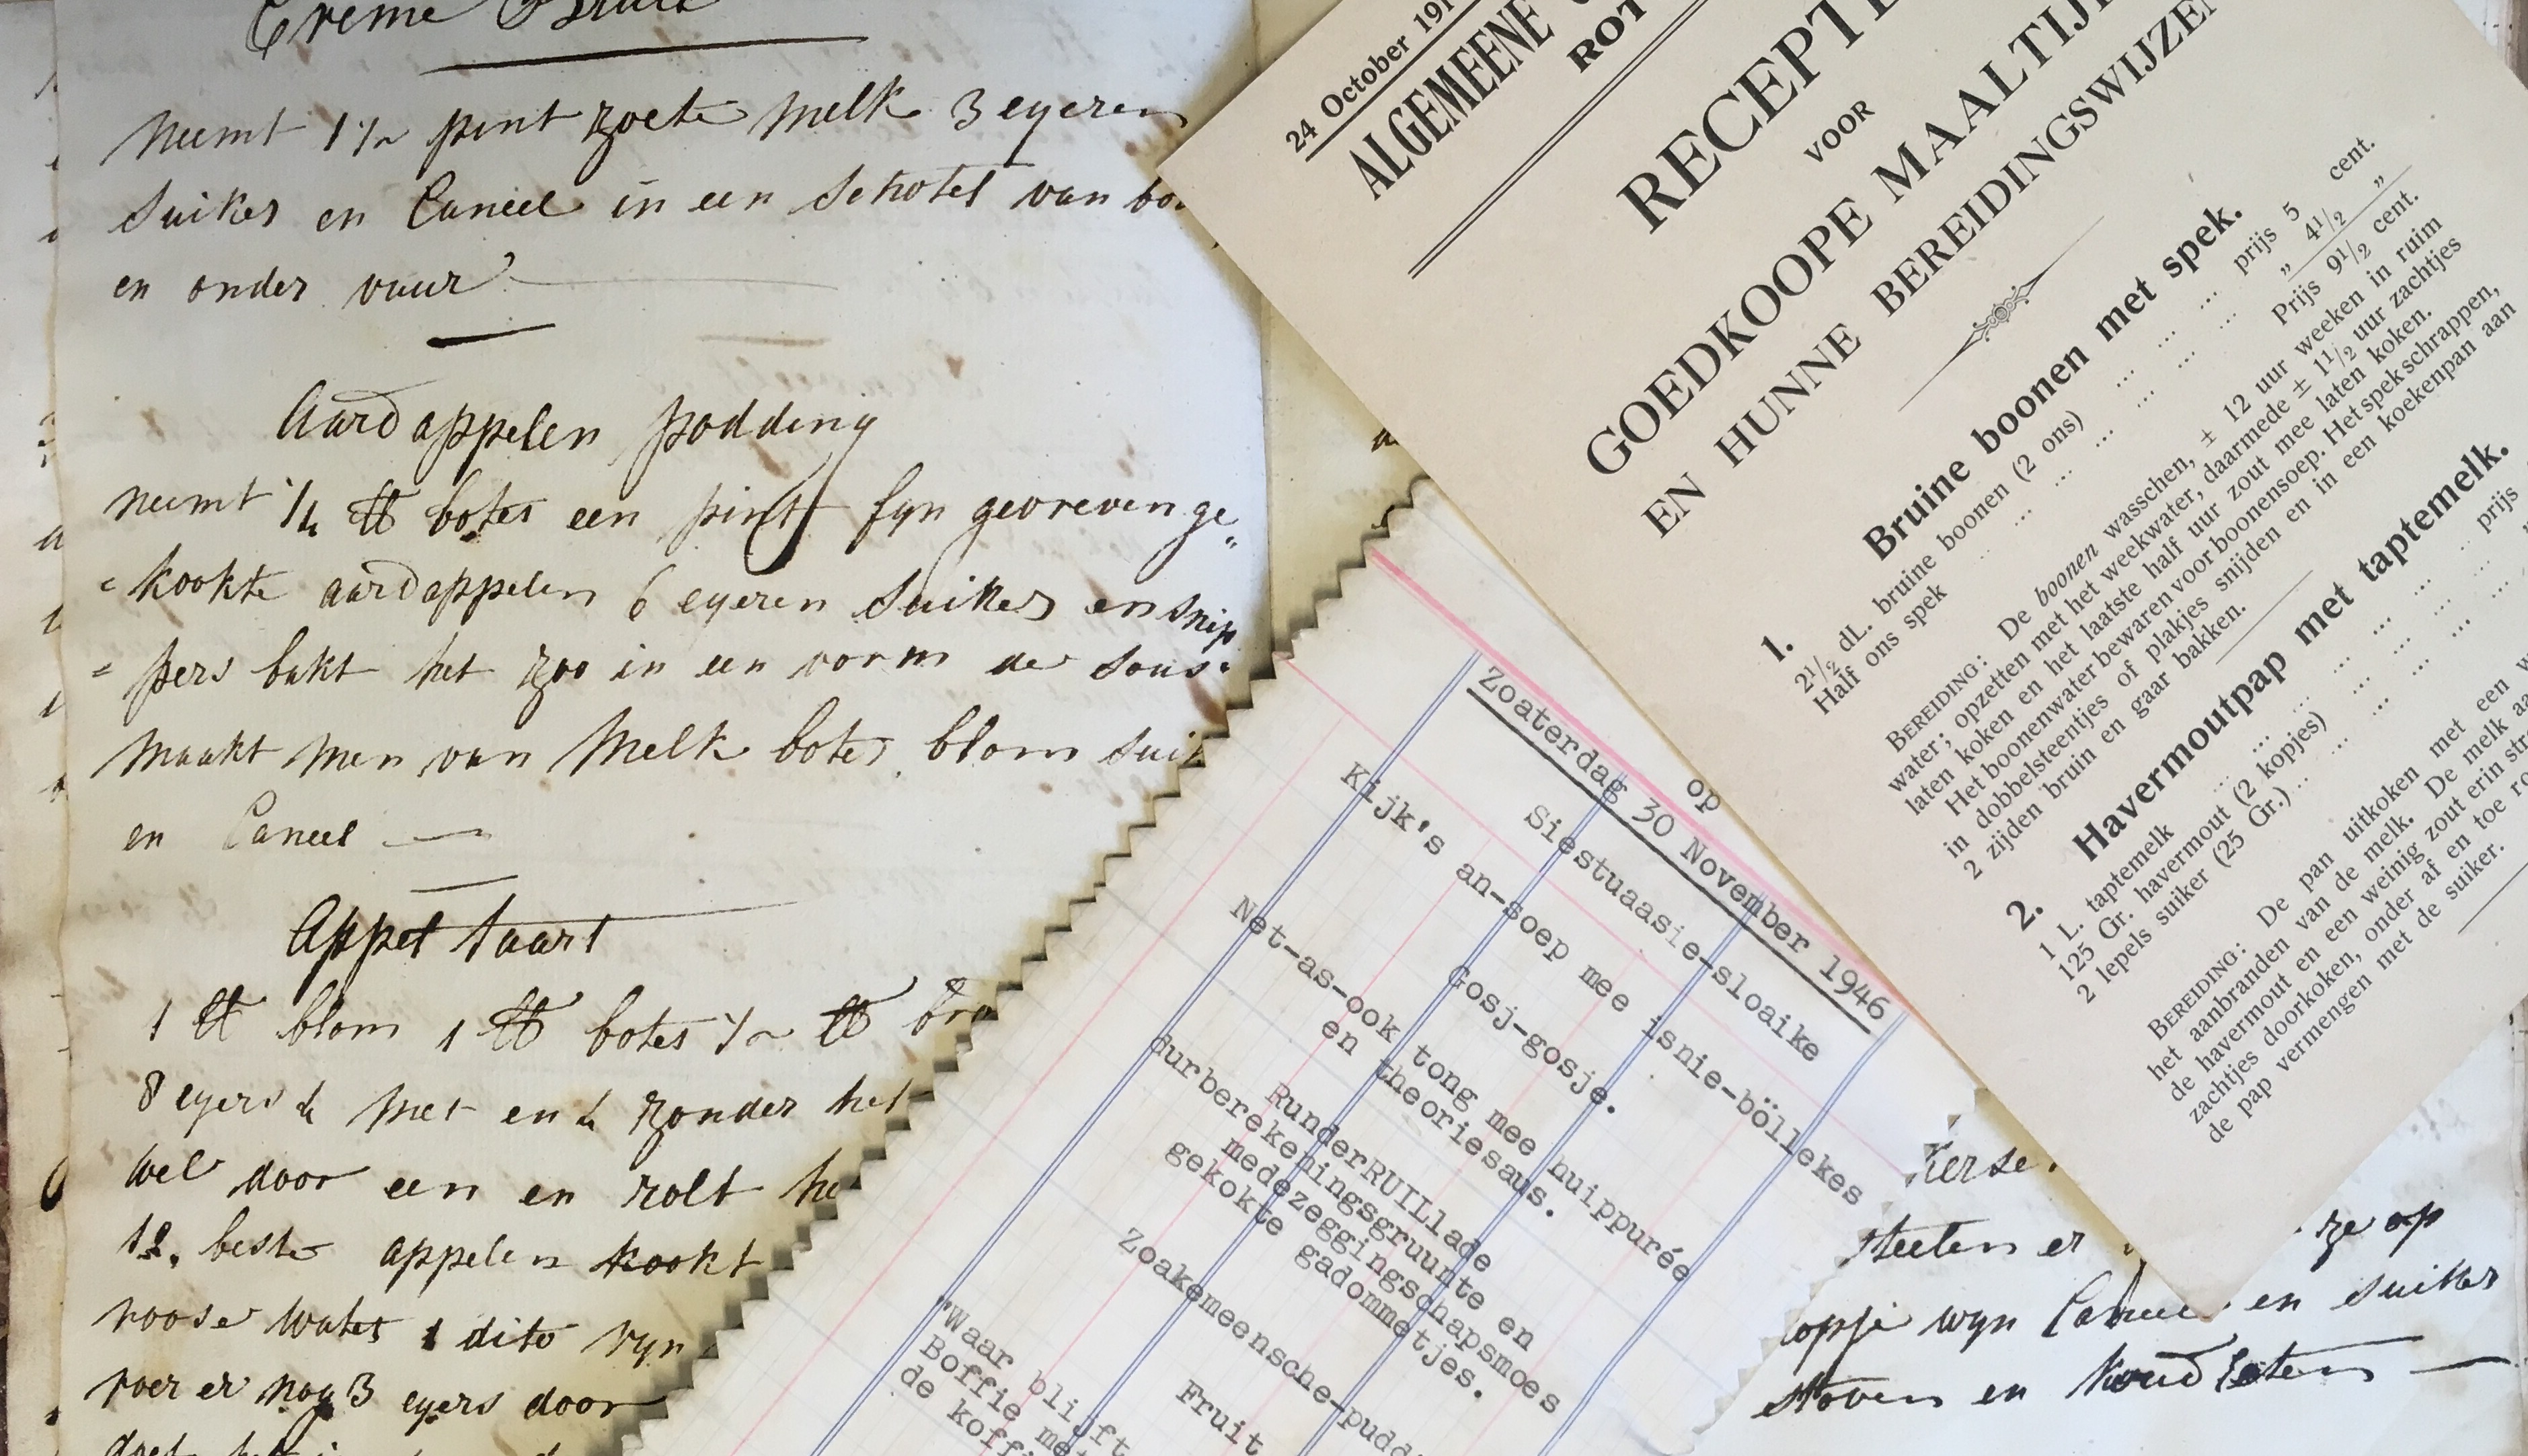 Creme
neemt 1½ pint zoete melk 3 eyeren
suiker en Caneel in een schotel van
en onder vuur
Aardappelen podding
neemt ¼ ℔ boter een pint fyn gevreven ge„
„kookte aardappelen 6 eyeren suiker en snip
„pers bakt het zoo in een vorm de sous
maakt men van melk boter blom suik
en Caneel
Appel taart
1 ℔ blom 1 ℔ boter ½ ℔
8 eyers 4 met en 4 zonder het
wel door een en rolt he
12. beste appelen kookt
roose water 1 dito ryn
roer er nog 3 eyers door
24 October 191
ALGEMEENE
ROT
RECEPTE
VOOR
GOEDKOOPE MAALTIJ
EN HUNNE BEREIDINGSWIJZEN
1. Bruine boonen met spek.
2½ dL. bruine boonen (2 ons) ... ... ... prijs 5 cent.
Half ons spek ... ... ... ... ... ... „ 4½ „
Prijs 9½ cent.
BEREIDING: De boonen wasschen, ± 12 uur weeken in ruim
water; opzetten met het weekwater, daarmede ± 1½ uur zachtjes
laten koken en het laatste half uur zout mee laten koken.
Het boonenwater bewaren voor boonensoep. Het spek schrappen,
in dobbelsteentjes of plakjes snijden en in een koekenpan aan
2 zijden bruin en gaar bakken.
2. Havermoutpap met taptemelk.
1 L. taptemelk ... ... ... ... ... prijs
125 Gr. havermout (2 kopjes) ... ... ...
2 lepels suiker (25 Gr.) ... ... ... ...
BEREIDING: De pan uitkoken met een
het aanbranden van de melk. De melk aa
de havermout en een weinig zout erin str
zachtjes doorkoken, onder af en toe ro
de pap vermengen met de suiker.
op
Zoaterdag 30 November 1946
Siestuaasie-sloaike
Kijk's an-soep mee isnie-böllekes
Gosj-gosje.
Net-as-ook tong mee huippurée
en theoriesaus.
RunderRUILlade
durberekeningsgruunte en
medezeggingschapsmoes
gekokte gadommetjes.
Zoakemeensche-pudd
Fruit
"Waar blijft
Boffie met
de koffi
Kerse
steelen er ze op
kopje wyn Caneel en suiker
stoven en koud eeten